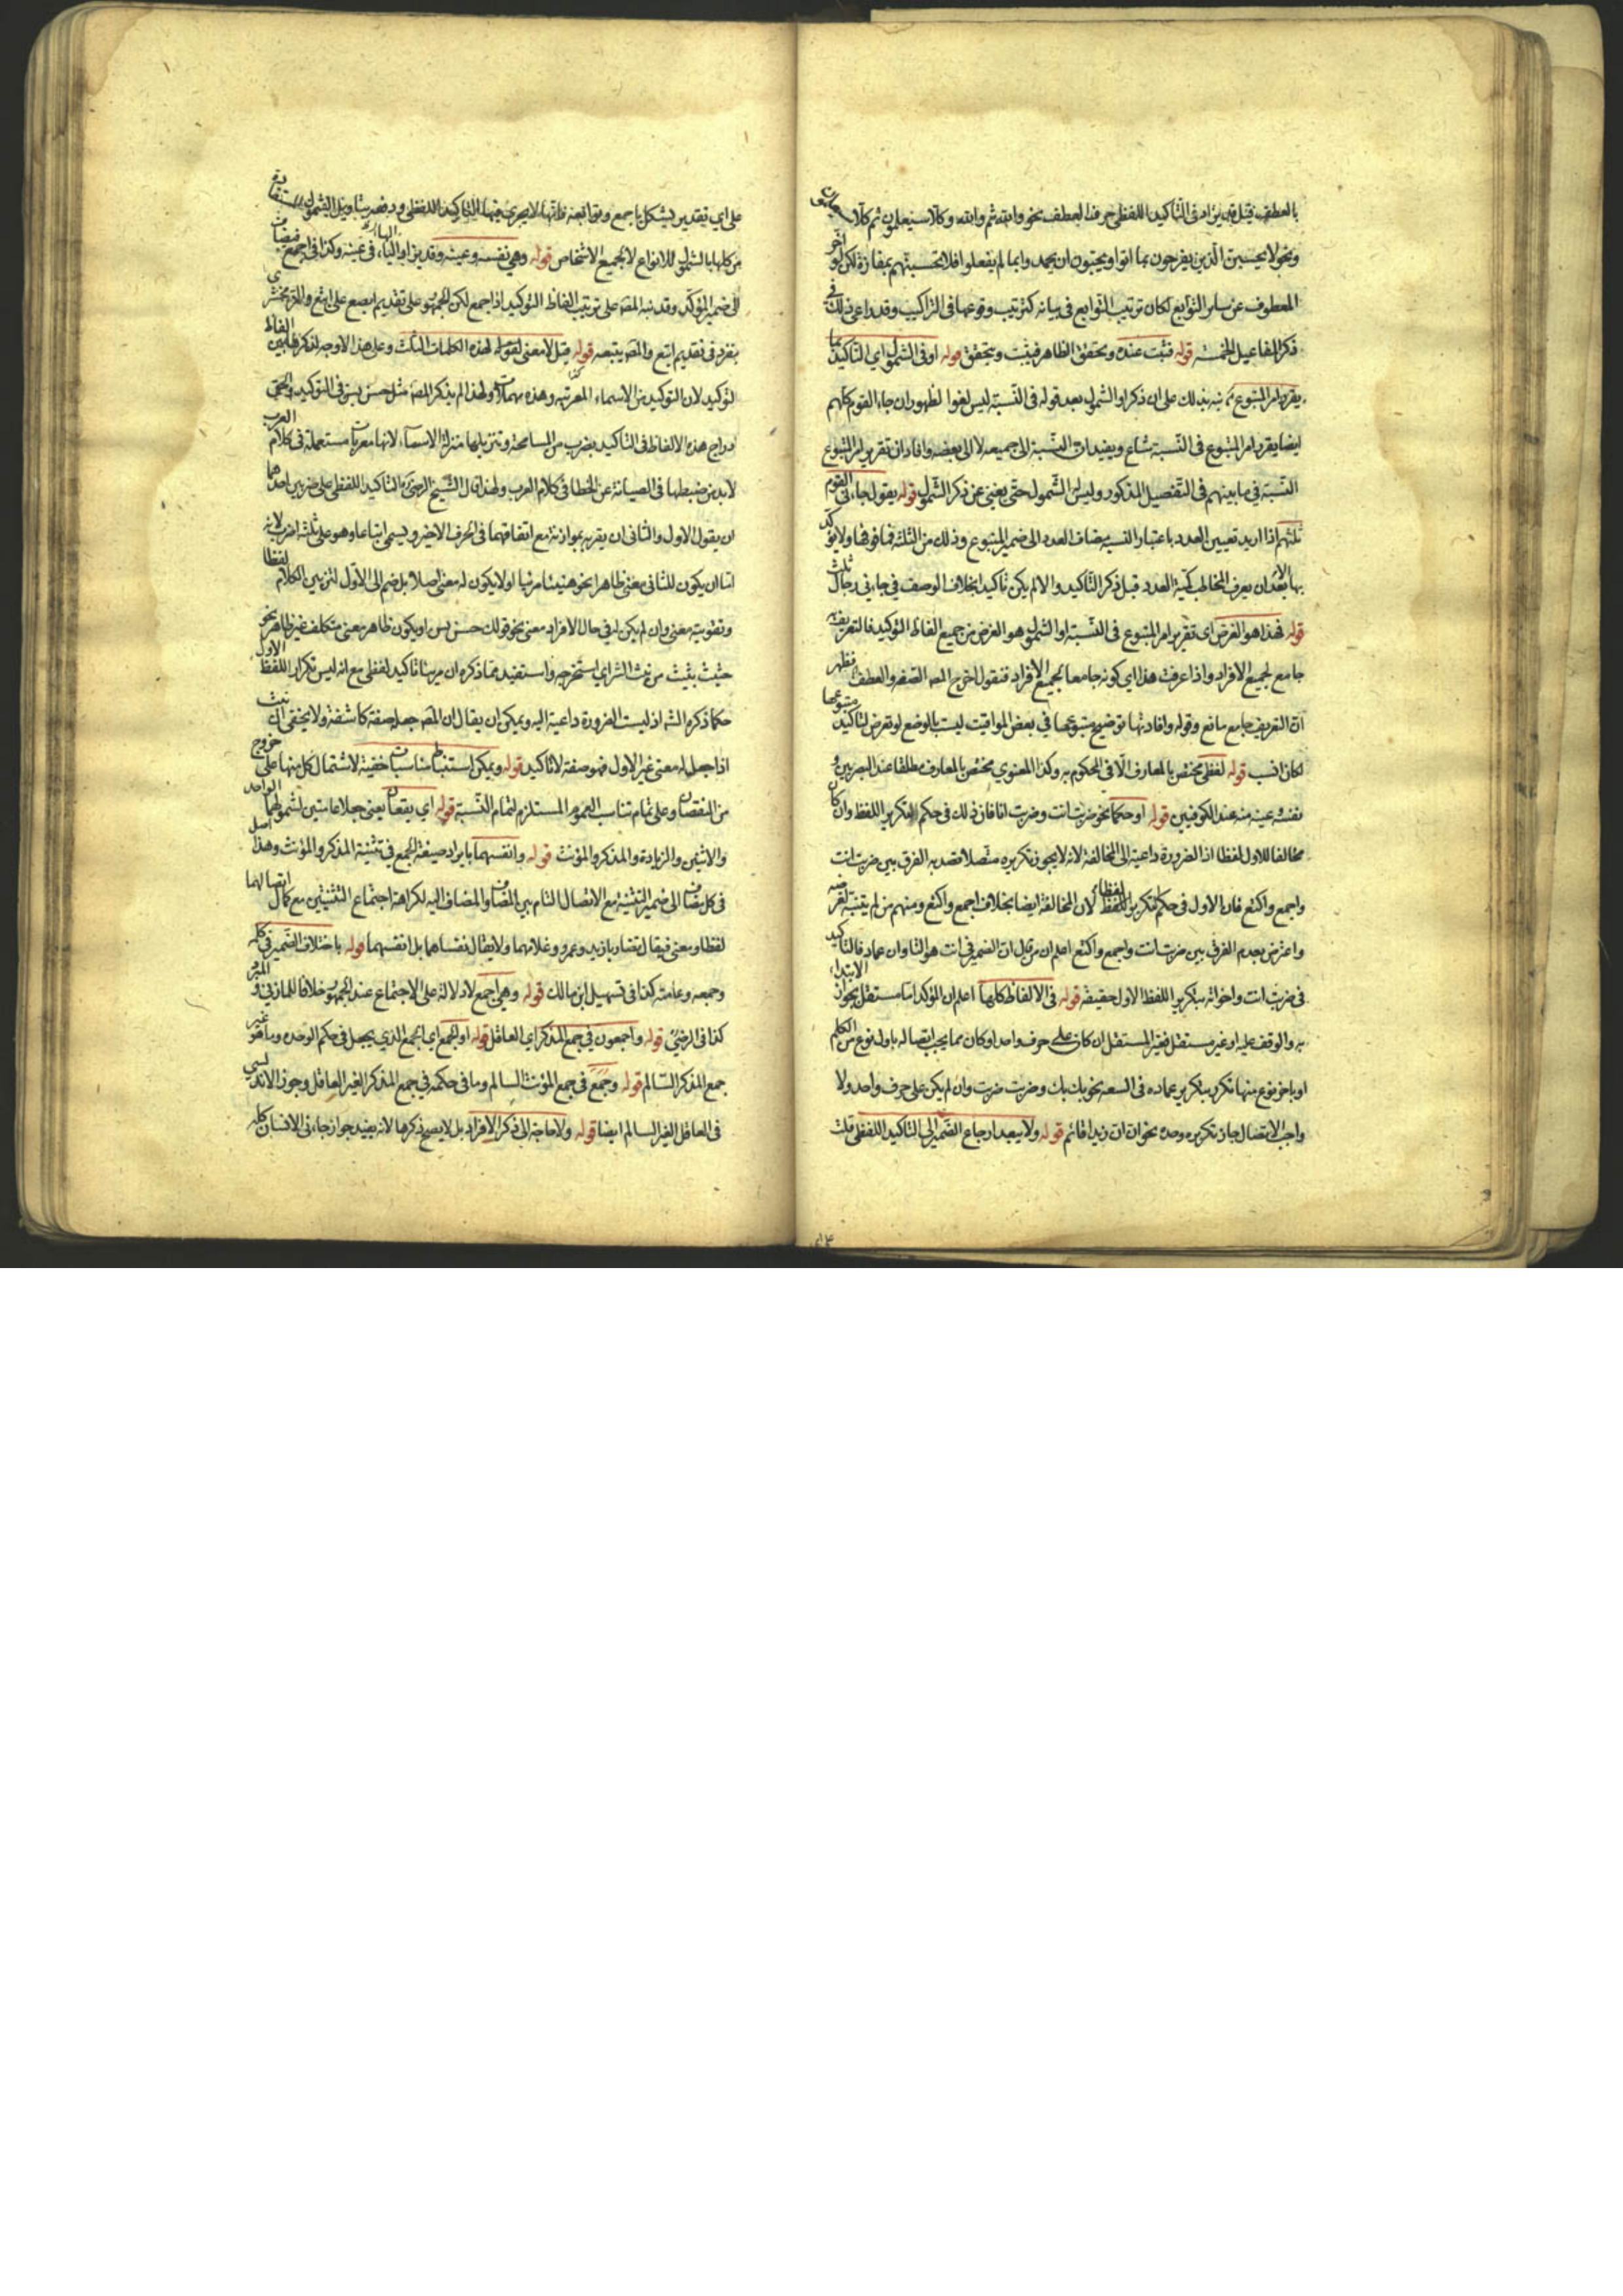 بالعطف قيل قد يزاد فى التأكيد اللفظى حرف العطف نحو والله ثم والله وكلا سيعلمون ثم كلا سيعلمون
ونحو لا يحسبن الذين يفرحون بما اتوا ويحبون ان يحمدوا بما لم يفعلوا فلا تحسبنهم بمفازة لكن لو اخر
المعطوف عن سائر التوابع لكان ترتيب التوابع فى بيانه كترتيب وقوعها فى التراكيب وقد راعى ذلك فى
ذكر المفاعيل الخمسة قوله فثبت عنده ويحقق الظاهر فيثبت ويتحقق قوله او فى الشمول اى التأكيد ما
يقرر امر المتبوع نبه بذلك على ان ذكر او الشمول بعد قوله فى النسبة ليس لغوا لظهور ان جاء القوم كلهم
ايضا يقرر امر المتبوع فى النسبة شاع ويفيد ان النسبة الى جميعه لا الى بعضه وافاد ان تقرير امر المتبوع
النسبة فى ما بينهم فى التفصيل المذكور وليس الشمول حتى يغنى عن ذكر الشمول قوله يقول جاءنى القوم
ثلثتهم اذا اريد تعيين العدد باعتبار النسبة يضاف العدد الى ضمير المتبوع وذلك من الثلثة فما فوقها ولا يؤكد
بها الا بعد ان يعرف المخاطب كمية العدد قبل ذكر التأكيد والا لم يكن تأكيدا بخلاف الوصف فى جاءنى رجال ثلث
قوله فهذا هو الغرض اى تقرير امر المتبوع فى النسبة او الشمول هو الغرض من جميع الفاظ التوكيد فالتعريف
جامع لجميع الافراد واذا عرفت هذا اى كونه جامعا لجميع الافراد فنقول اخرج المص الصفة والعطف فظهر
ان التعريف جامع مانع وقوله وافادتها توضيح متبوعها فى بعض المواقيت ليست بالوضع لو تعرض لتأكيد متبوعها
لكان انسب قوله لفظى مختص بالمعارف الا فى المحكوم به وكذا المعنوى مختص بالمعارف مطلقا عند البصريين و
نفسه عينه منه عند الكوفيين قوله او حكما نحو ضربت انت وضربت انا فان ذلك فى حكم تكرير اللفظ وان كان
مخالفا للاول لفظا اذ الضرورة داعية الى المخالفة لانه لا يجوز تكريره متصلا فقصد به الفرق بين ضربت انت
واجمع واكتع فان الاول فى حكم تكرير اللفظ لفظا لان المخالفة ايضا بخلاف اجمع واكتع ومنهم من لم يتنبه لغرضه
واعترض بعدم الفرق بين ضربت انت واجمع واكتع اعلم ان من قال ان الضمير فى انت هو التاء وان عماد فالتأكيد
فى ضربت انت واخواته بتكرير اللفظ الاول حقيقة قوله فى الالفاظ كلها اعلم ان المؤكد اما مستقل يجوز الابتداء
به والوقف عليه او غير مستقل فغير المستقل ان كان على حرف واحد او كان مما يجب اتصاله باول نوع من الكلم
او باخر نوع منها تكرر بتكرير عماده فى السعة نحو بك بك وضربت ضربت وان لم يكن على حرف واحد ولا
واجب الاتصال جاز تكريره وحده نحو ان ان زيدا قائم قوله ولا يبعد ارجاع الضمير الى التأكيد اللفظى قلت
على اى تقدير يشكل باجمع وتوابعه فانها لا يجرى فيها التأكيد اللفظى ودفعه بتأويل الشمول المستفاد
من كلها بالشمول للانواع لا لجميع الاشخاص قوله وهى نفسه وعينه وقد يزاد الباء فى عينه وكذا فى اجمع فيضاف
الى ضمير المؤكد وقد نبه المص على ترتيب الفاظ التوكيد اذا جمع لكن الجمهور على تقديم ابصع على ابتع والزمخشرى
ينفرد فى تقديم ابتع والمص يتبعه قوله قيل لا معنى لهذه الكلمات الثلث وعلى هذا الاوجه لذكرها بين الفاظ
التوكيد لان التوكيد من الاسماء المعربة وهذه مهملات ولهذا لم يذكر المص مثل حسن بسن فى التوكيد والحق
ادراج هذه الالفاظ فى التأكيد بضرب من المسامحة وتنزيلها منزلة الاسماء لانها معربات مستعملة فى كلام العرب
لا بد من ضبطها فى الصيانة عن الخطأ فى كلام العرب ولهذا قال الشيخ الرضى والتأكيد اللفظى على ضربين احدهما
ان يقول الاول والثانى ان يقربه بموازنة مع اتفاقهما فى الحرف الاخير ويسمى اتباعا وهو على ثلثة اضرب لانه
اما ان يكون للثانى معنى ظاهرا نحو هنيئا مريئا او لا يكون له معنى اصلا بل ضم الى الاول لتزيين الكلام لفظا
وتقويته معنى وان لم يكن له فى حال الافراد معنى نحو قولك حسن بسن او يكون ظاهر معنى متكلف غير ظاهر نحو
خبيث نبيث من نبث الشر اى استخرجه واستفيد مما ذكره ان مريئا تأكيد لفظى مع انه ليس تكرار اللفظ الاول
حكما ذكره الشه اذ ليست الضرورة داعية اليه ويمكن ان يقال ان المص جعله صفة كاشفة ولا يخفى ان نبيث
اذا جعل له معنى غير الاول فهو صفة لا تأكيد قوله ويمكن استنباط مناسبات خفية لاشتمال كل منها على خروج
من النقصان وعلى تمام تناسب العموم المستلزم لتمام النسبة قوله اى يقعان يعنى جعلا عامين لشمولهما الواحد
والاثنين والزيادة والمذكر والمؤنث قوله وانفسهما بايراد صيغة الجمع فى تثنية المذكر والمؤنث وهذا اصل
فى كل مضاف الى ضمير التثنية مع الاتصال التام بين المضاف والمضاف اليه لكراهة اجتماع التثنيتين مع كمال اتصالهما
لفظا ومعنى فيقال نضار بازيد وعمرو وغلامهما ولا يقال نفساهما بل انفسهما قوله باختلاف الضمير فى كله
وجمعه وعامته كذا فى تسهيل ابن مالك قوله وهى اجمع لا دلالة على الاجتماع عند الجمهور خلافا للمازنى والمبرد
كذا فى الرضى قوله واجمعون فى جمع المذكر اى العاقل قوله او الجمع اى الجمع الذى يجعل فى حكم الوحدة وما هو غير
جمع المذكر السالم قوله وجمع فى جمع المؤنث السالم وما فى حكمه فى جمع المذكر الغير العاقل وجوز الاندلسى
فى العاقل الغير السالم ايضا قوله ولا حاجة الى ذكر الافراد بل لا يصح ذكرها لانه يفيد جواز جاءنى الانسان كله